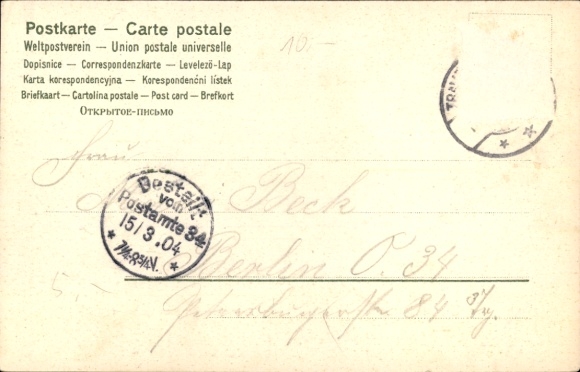 Postkarte — Carte postale
Weltpostverein — Union postale universelle
Dopisnice — Correspondenzkarte — Levelező-Lap
Karta korespondencyjna — Korespondenční lístek
Briefkaart — Cartolina postale — Post card — Brefkort
Открытое-письмо
10.-
TRAU
Frau
Beck
Bestellt
vom
Postamte 34
15/3.04
Berlin O. 34
5.-
Petersburgerstr 84